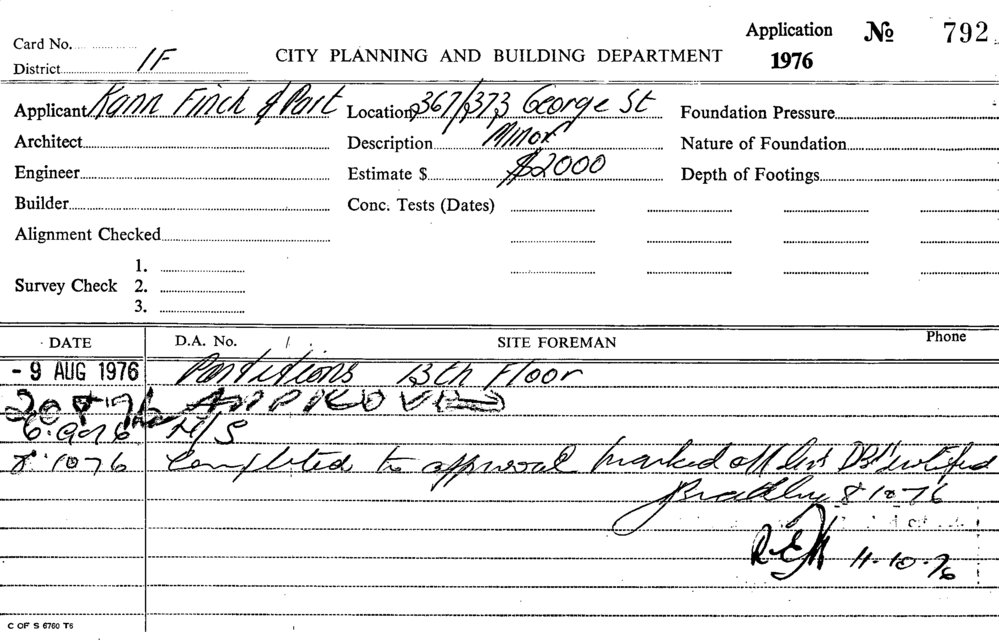 Application № 792
Card No.
1976
District 1F
CITY PLANNING AND BUILDING DEPARTMENT
Applicant Kann Finch & Part Location 367/373 George St Foundation Pressure
Architect Description Minor Nature of Foundation
Engineer Estimate $ $2000 Depth of Footings
Builder Conc. Tests (Dates)
Alignment Checked
1.
Survey Check 2.
3.
DATE D.A. No. SITE FOREMAN Phone
- 9 AUG 1976 Partitions 13th Floor
20 8 76 APPROVED
6.9.76 N/S
8.10.76 Completed to approval marked off
Bradley 8 10 76
11.10.76
C OF S 6760 T6